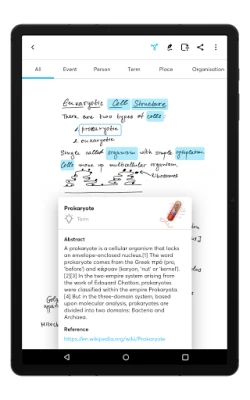 All Event Person Term Place Organisation
Eucaryotic Cell Structure
There are two types of cells:
1. prokaryotic
2. eucaryotic
Single celled organism with simple cytoplasm
Cells move in multicellular organism.
Ribosomes
Prokaryote
Term
Abstract
A prokaryote is a cellular organism that lacks
an envelope-enclosed nucleus.[1] The word
prokaryote comes from the Greek πρό (pro,
'before') and κάρυον (karyon, 'nut' or 'kernel').
[2][3] In the two-empire system arising from
the work of Édouard Chatton, prokaryotes
were classified within the empire Prokaryota.
[4] But in the three-domain system, based
upon molecular analysis, prokaryotes are
divided into two domains: Bacteria and
Archaea.
Reference
https://en.wikipedia.org/wiki/Prokaryote